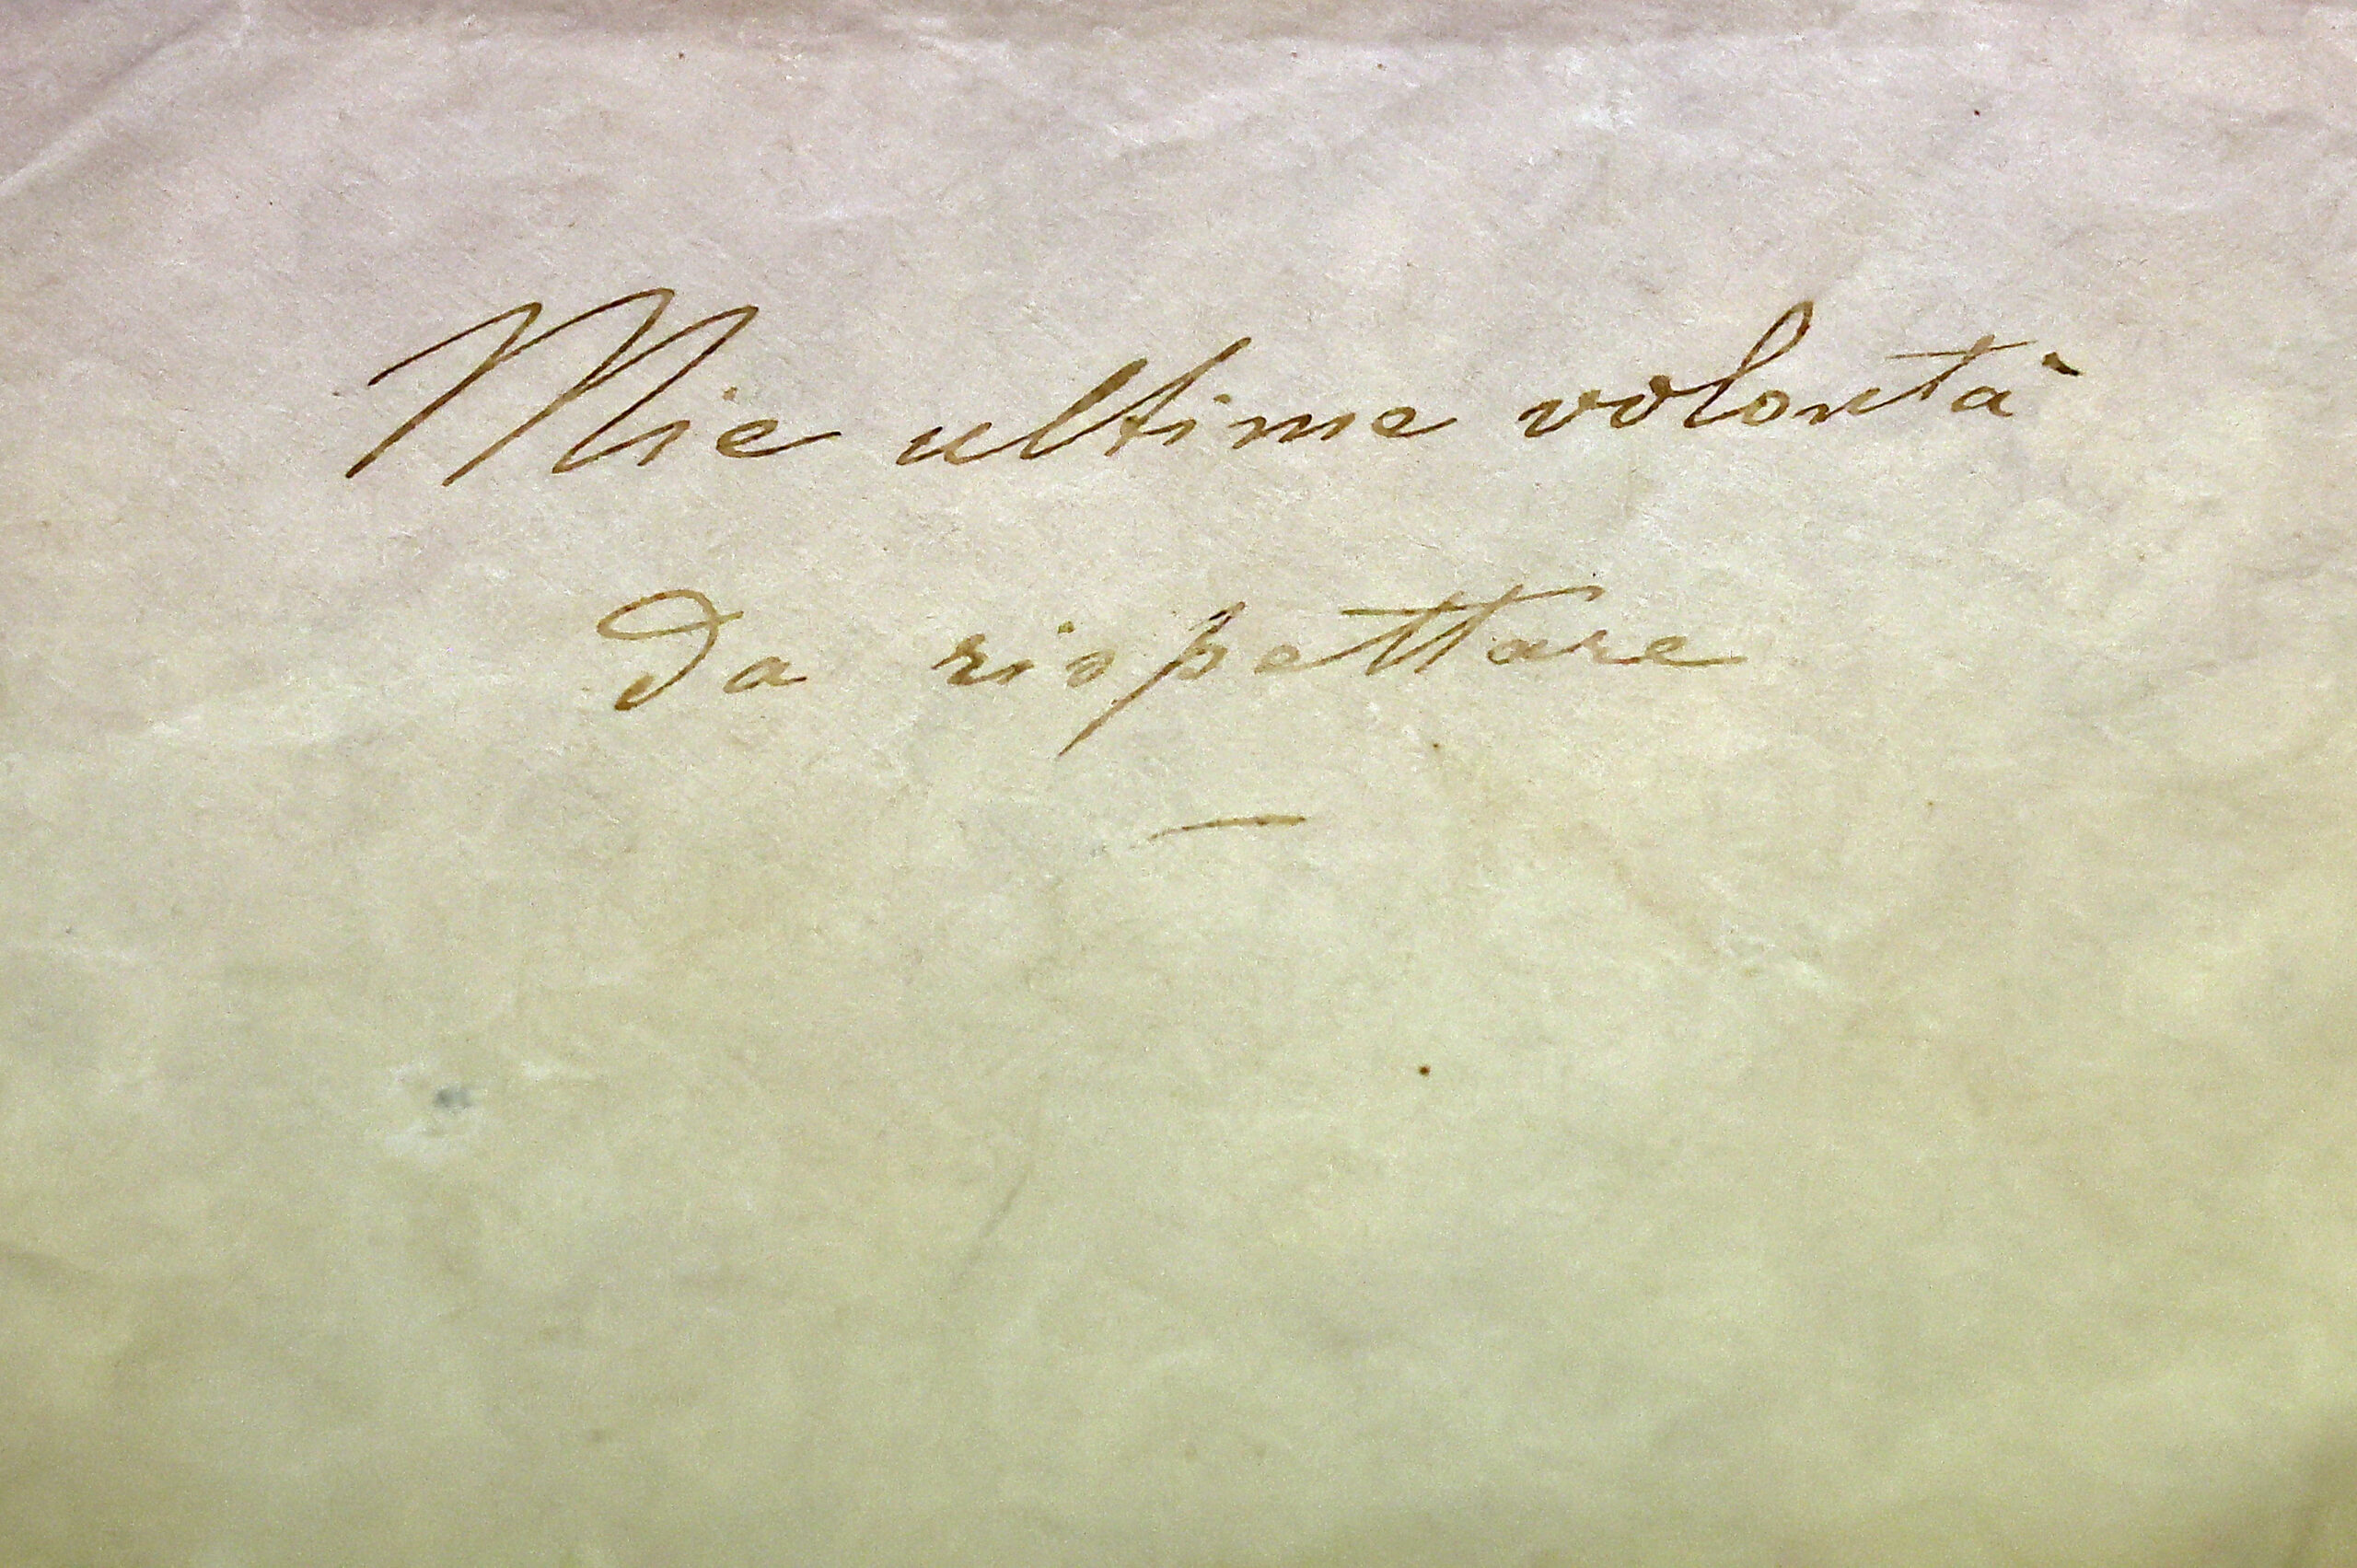 Mie ultime volontà
da rispettare
—